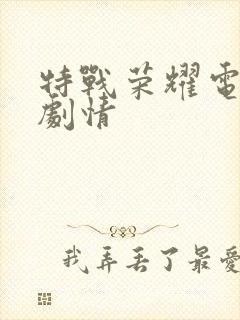 特戰荣耀電
劇情
我弄丟了最愛